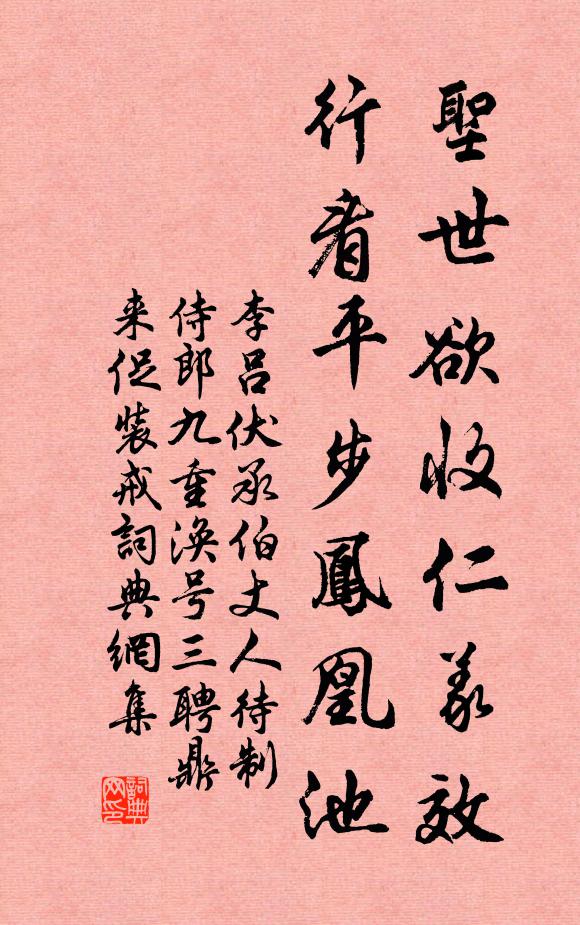 聖世欲收仁義效
行看平步鳳凰池
李吕伏承伯丈人待制
侍郎九重渙号三聘鼎
来促装戒詞典網集
詞典
网印